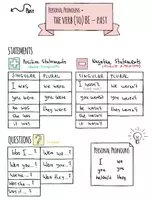 Past
PERSONAL PRONOUNS +
THE VERB (TO) BE – PAST
STATEMENTS
Positive Statements
Negative Statements
SINGULAR PLURAL
SINGULAR PLURAL
I was we were
you were you were
he was they were
she was
it was
I wasn't
he wasn't
she wasn't
it wasn't
QUESTIONS
SINGULAR PLURAL
Was I...? Were we...?
Were you...? Were you...?
Was he...? Were they...?
Was she...?
Was it...?
PERSONAL PRONOUNS
I we
you you
he/she/it they